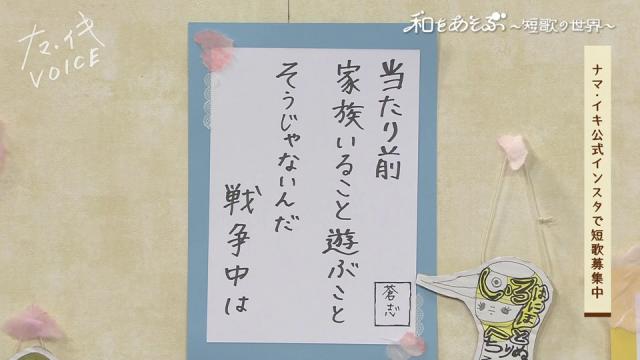 ナマ・イキ
VOICE
和をあそぶ～短歌の世界～
ナマ・イキ公式インスタで短歌募集中
当たり前
家族いること遊ぶこと
そうじゃないんだ
戦争中は
蒼志